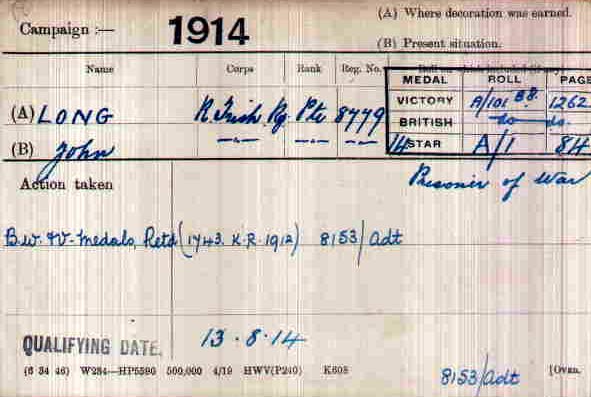 (A) Where decoration was earned.
Campaign :— 1914
(B) Present situation.
Name Corps Rank Reg. No.
MEDAL ROLL PAGE
(A) LONG R. Irish Rg. Pte 8779 VICTORY A/101 B8. 1262
BRITISH —do— do.
(B) John —"— —"— —"— 14 STAR A/1 84
Action taken Prisoner of War
B.W. & V. Medals, Retd (1743. K.R. 1912) 8153/adt
QUALIFYING DATE. 13 . 8 . 14
(6 34 46) W234—HP5590 500,000 4/19 HWV(P240) K608
8153/adt [Over.